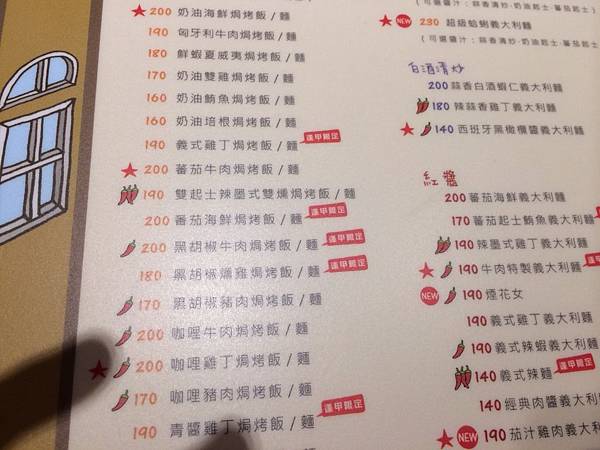 200 奶油海鮮焗烤飯 / 麵
190 匈牙利牛肉焗烤飯 / 麵
180 鮮蝦夏威夷焗烤飯 / 麵
170 奶油雙雞焗烤飯 / 麵
160 奶油鮪魚焗烤飯 / 麵
160 奶油培根焗烤飯 / 麵
190 義式雞丁焗烤飯 / 麵 逢甲限定
200 蕃茄牛肉焗烤飯 / 麵
190 雙起士辣墨式雙燻焗烤飯 / 麵
200 番茄海鮮焗烤飯 / 麵 逢甲限定
200 黑胡椒牛肉焗烤飯 / 麵 逢甲限定
180 黑胡椒燻雞焗烤飯 / 麵 逢甲限定
170 黑胡椒豬肉焗烤飯 / 麵
200 咖哩牛肉焗烤飯 / 麵
200 咖哩雞丁焗烤飯 / 麵
170 咖哩豬肉焗烤飯 / 麵
190 青醬雞丁焗烤飯 / 麵 逢甲限定
(可選醬汁：蒜香清炒‧奶油起士‧蕃茄起士)
NEW 230 超級蛤蜊義大利麵
(可選醬汁：蒜香清炒‧奶油起士‧蕃茄起士
白酒清炒
200 蒜香白酒蝦仁義大利麵
180 辣蒜香雞丁義大利麵
140 西班牙黑橄欖醬義大利麵
紅醬
200 蕃茄海鮮義大利麵
170 蕃茄起士鮪魚義大利麵
190 辣墨式雞丁義大利麵
190 牛肉特製義大利麵 逢甲限定
NEW 190 煙花女
190 義式雞丁義大利麵
190 義式辣蝦義大利麵
140 義式辣麵 逢甲限定
140 經典肉醬義大利麵
NEW 190 茄汁雞肉義大利麵